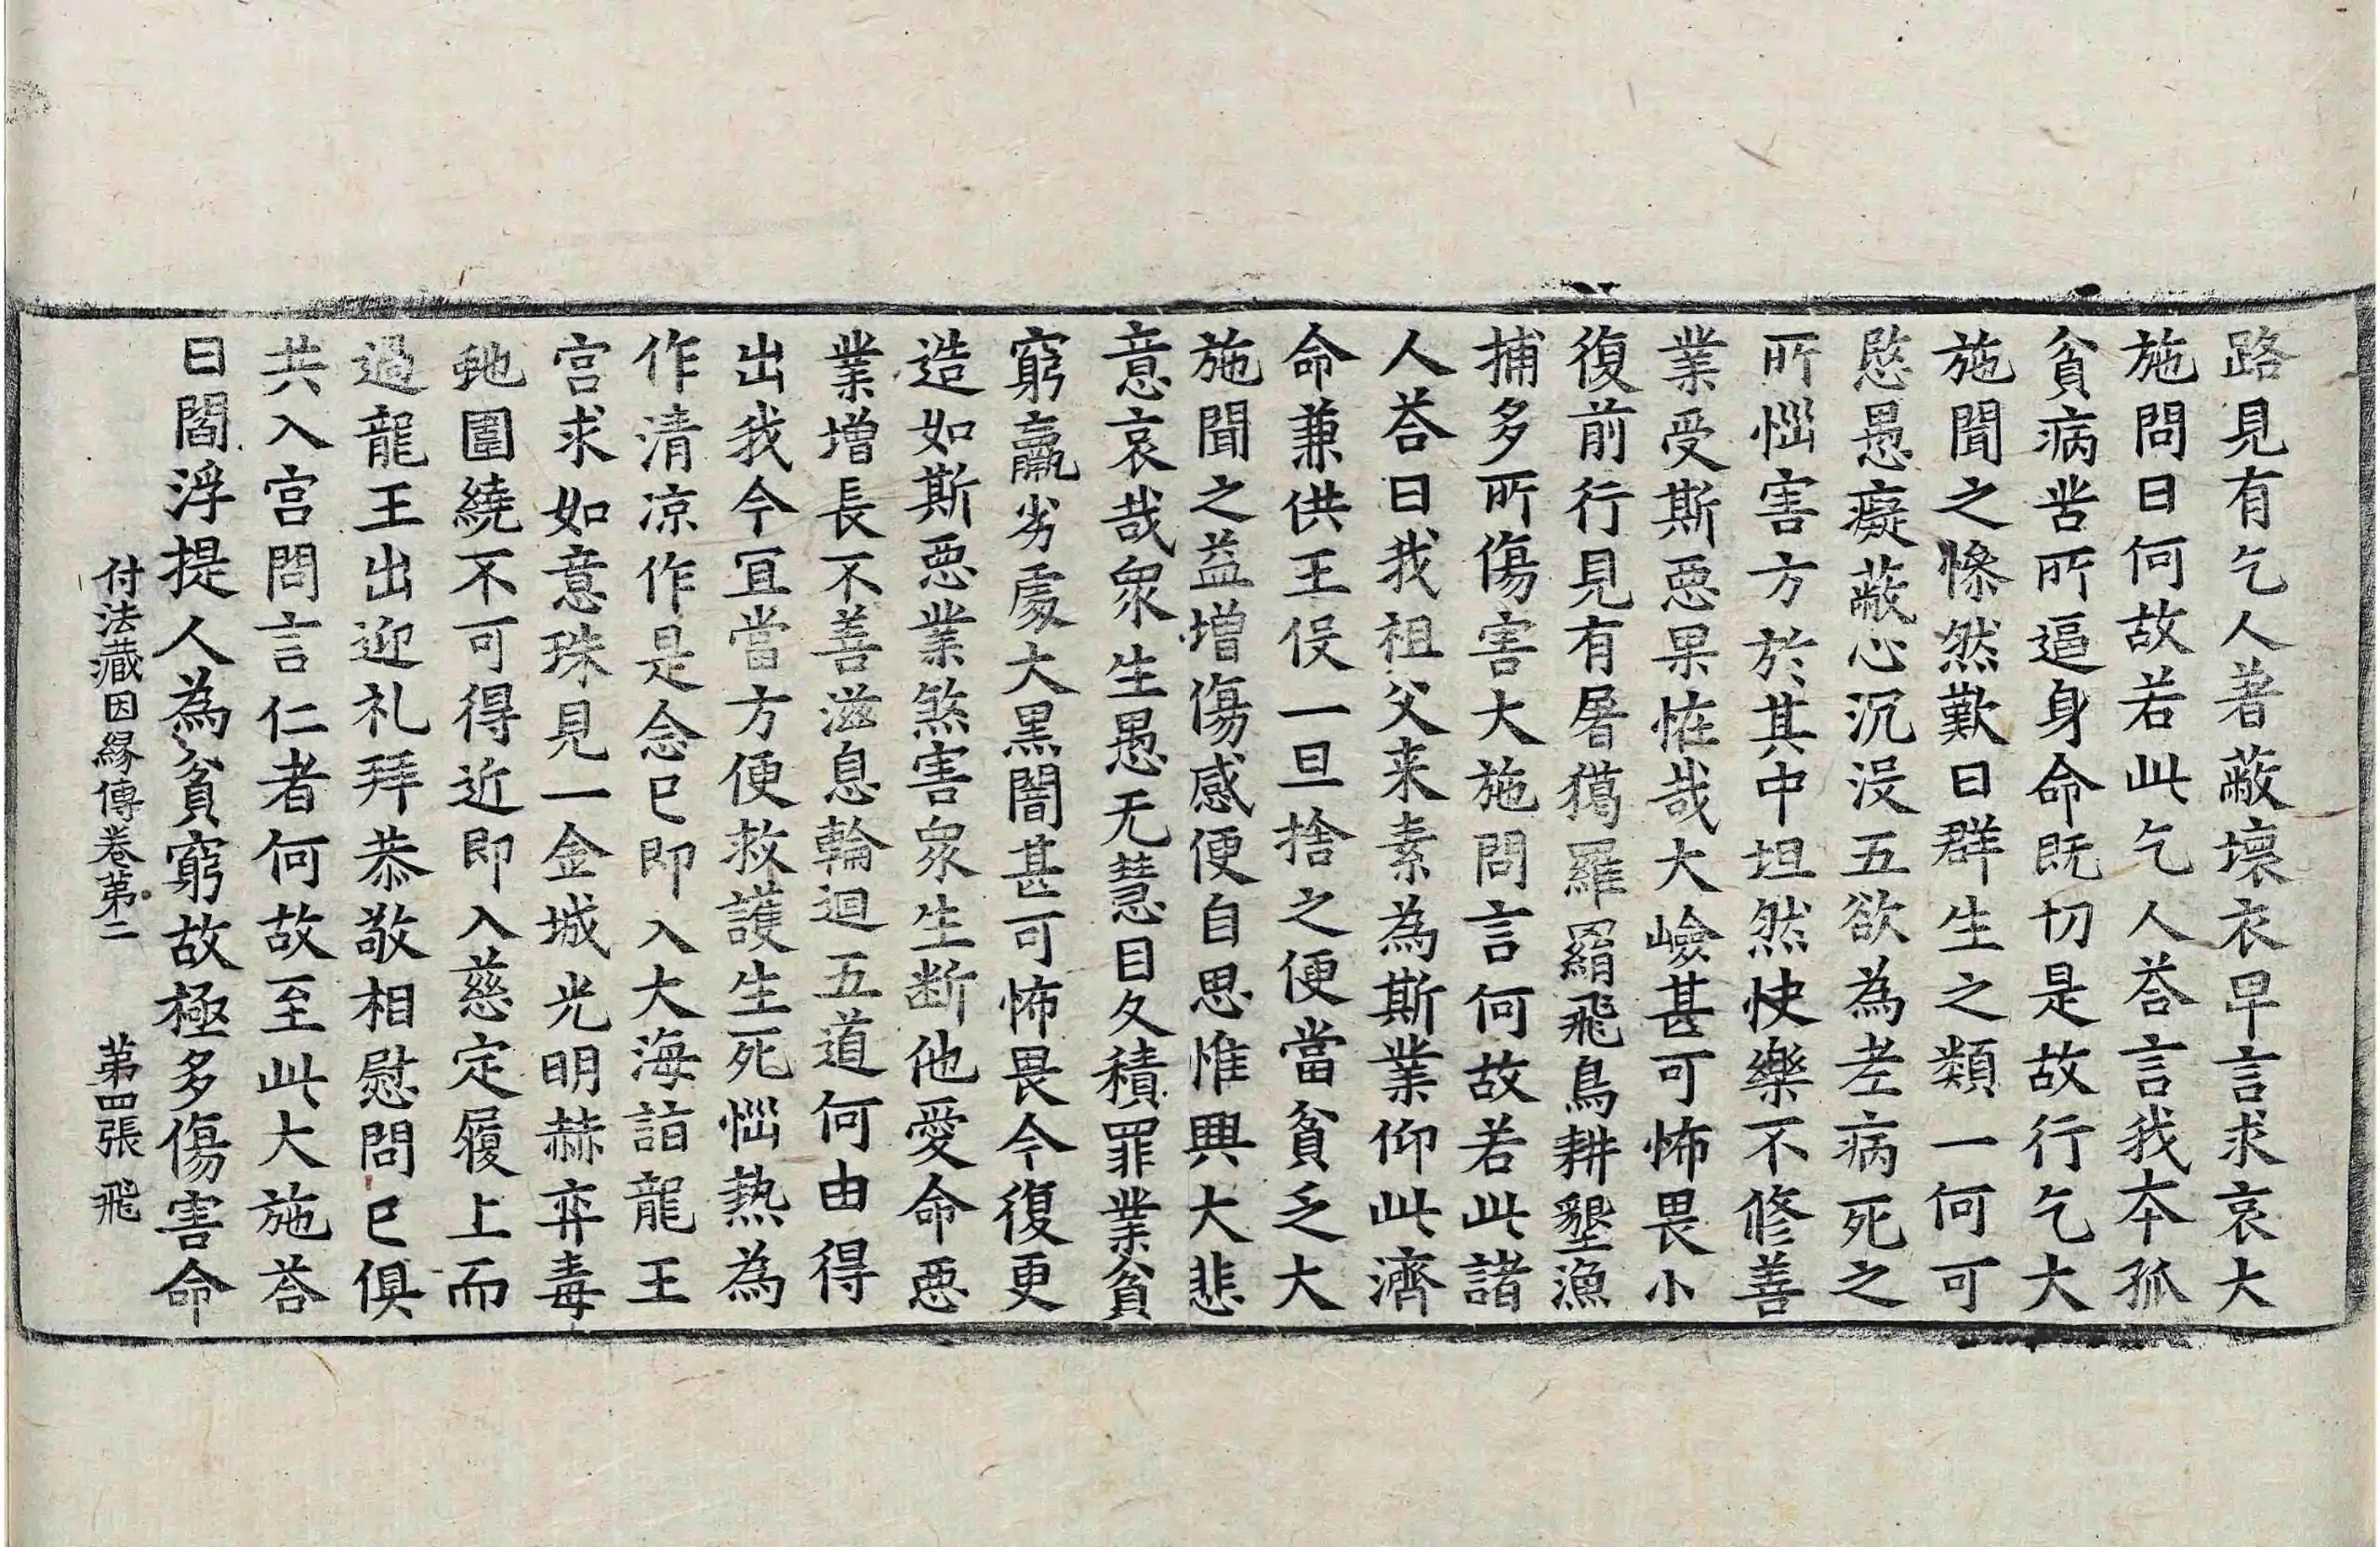 路見有乞人著蔽壞衣早言求哀大
施問曰何故若此乞人荅言我本孤
貧病苦所逼身命既切是故行乞大
施聞之慘然歎曰群生之類一何可
愍愚癡蔽心沉没五欲為老病死之
所惱害方於其中坦然快樂不修善
業受斯惡果恠哉大嶮甚可怖畏小
復前行見有屠獦羅䍉飛鳥耕墾漁
捕多所傷害大施問言何故若此諸
人荅曰我祖父来素為斯業仰此濟
命兼供王役一旦捨之便當貧乏大
施聞之益增傷感便自思惟興大悲
意哀哉眾生愚无慧目久積罪業貧
窮羸劣處大黑闇甚可怖畏今復更
造如斯惡業煞害眾生断他愛命惡
業增長不善滋息輪迴五道何由得
出我今冝當方便救護生死惱熱為
作清凉作是念已即入大海詣龍王
宫求如意珠見一金城光明赫弈毒
虵圍繞不可得近即入慈定履上而
過龍王出迎礼拜恭敬相慰問已俱
共入宫問言仁者何故至此大施荅
曰閻浮提人為貧窮故極多傷害命
付法藏因緣傳卷第二 第四張 飛